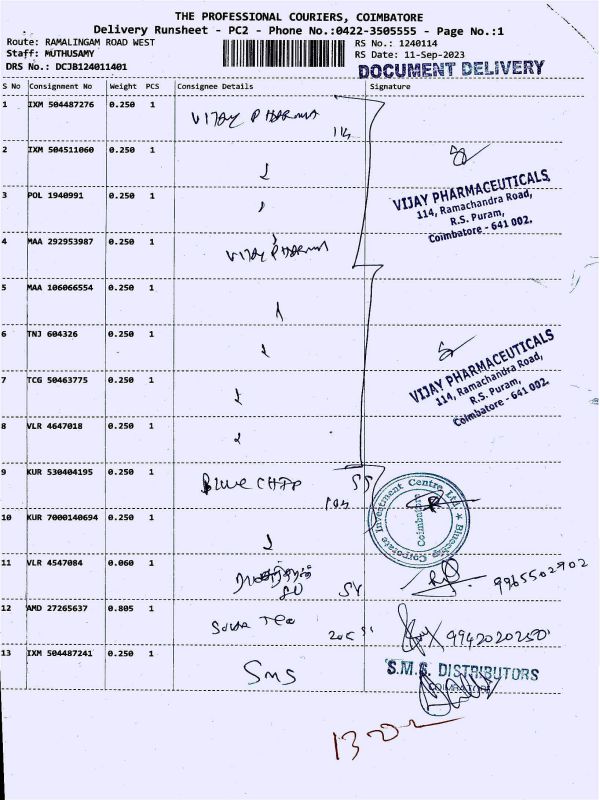 THE PROFESSIONAL COURIERS, COIMBATORE
Delivery Runsheet - PC2 - Phone No.:0422-3505555 - Page No.:1
Route: RAMALINGAM ROAD WEST RS No.: 1240114
Staff: MUTHUSAMY RS Date: 11-Sep-2023
DRS No.: DCJB124011401 DOCUMENT DELIVERY
S No Consignment No Weight PCS Consignee Details Signature
1 IXM 504487276 0.250 1 VIJAY PHARMA
2 IXM 504511060 0.250 1
3 POL 1940991 0.250 1
VIJAY PHARMACEUTICALS,
114, Ramachandra Road,
R.S. Puram,
Coimbatore - 641 002.
4 MAA 292953987 0.250 1 VIJAY PHARMA
5 MAA 106066554 0.250 1
6 TNJ 604326 0.250 1
7 TCG 50463775 0.250 1
VIJAY PHARMACEUTICALS
114, Ramachandra Road,
R.S. Puram,
Coimbatore - 641 002.
8 VLR 4647018 0.250 1
9 KUR 530404195 0.250 1 BLUE CHIP
Bluechip Corporate Investment Centre Ltd
Coimbatore
10 KUR 7000140694 0.250 1
11 VLR 4547084 0.060 1 9965502902
12 AMD 27265637 0.805 1 9942020250
13 IXM 504487241 0.250 1 SMS
S.M.S. DISTRIBUTORS
COIMBATORE